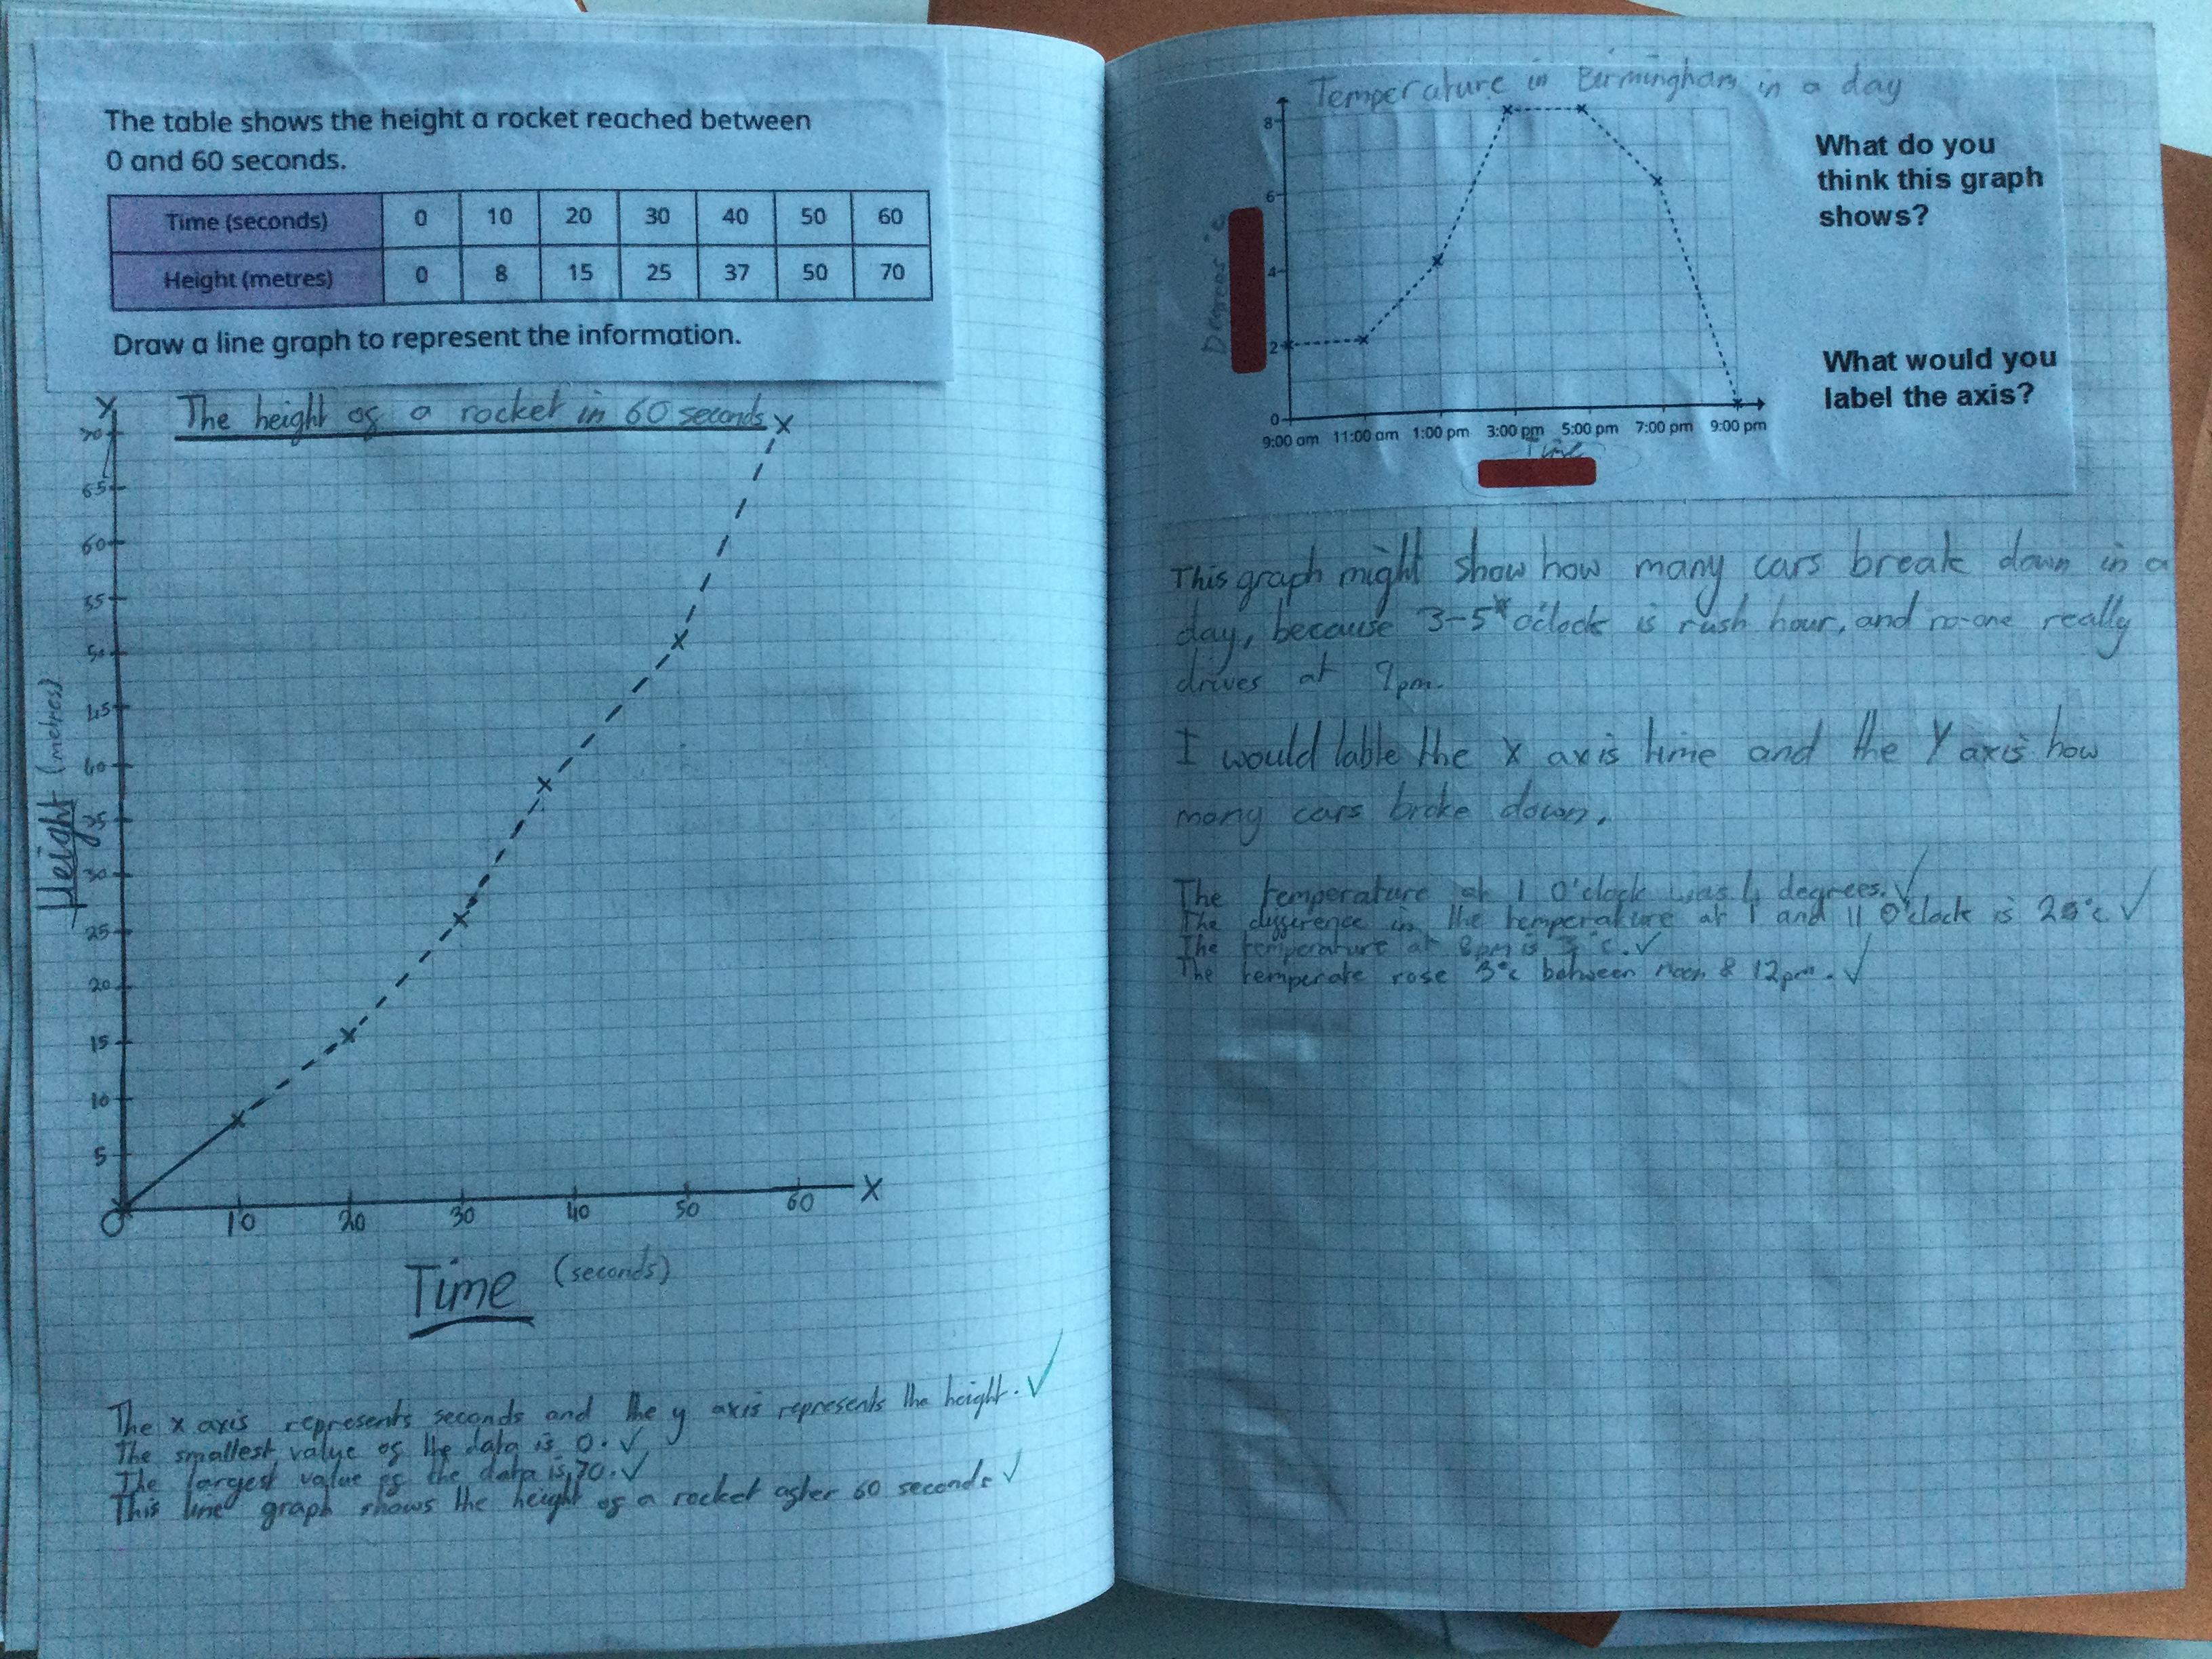 The table shows the height a rocket reached between
0 and 60 seconds.
Time (seconds) 0 10 20 30 40 50 60
Height (metres) 0 8 15 25 37 50 70
Draw a line graph to represent the information.
Y
The height of a rocket in 60 seconds
70
65
60
55
50
45
40
35
30
25
20
15
10
5
0
Height (metres)
10 20 30 40 50 60 X
Time (seconds)
The x axis represents seconds and the y axis represents the height. ✓
The smallest value of the data is 0. ✓
The largest value of the data is 70. ✓
This line graph shows the height of a rocket after 60 seconds ✓
Temperature in Birmingham in a day
8
6
4
2
0
9:00 am 11:00 am 1:00 pm 3:00 pm 5:00 pm 7:00 pm 9:00 pm
Time
What do you
think this graph
shows?
What would you
label the axis?
This graph might show how many cars break down in a
day, because 3-5 o'clock is rush hour, and no-one really
drives at 9pm.
I would lable the X axis time and the Y axis how
many cars broke down.
The temperature at 1 O'clock was 4 degrees. ✓
The difference in the temperature at 1 and 11 O'clock is 2°c ✓
The temperature at 8pm is 3°c. ✓
The temperate rose 3°c between noon & 12pm. ✓